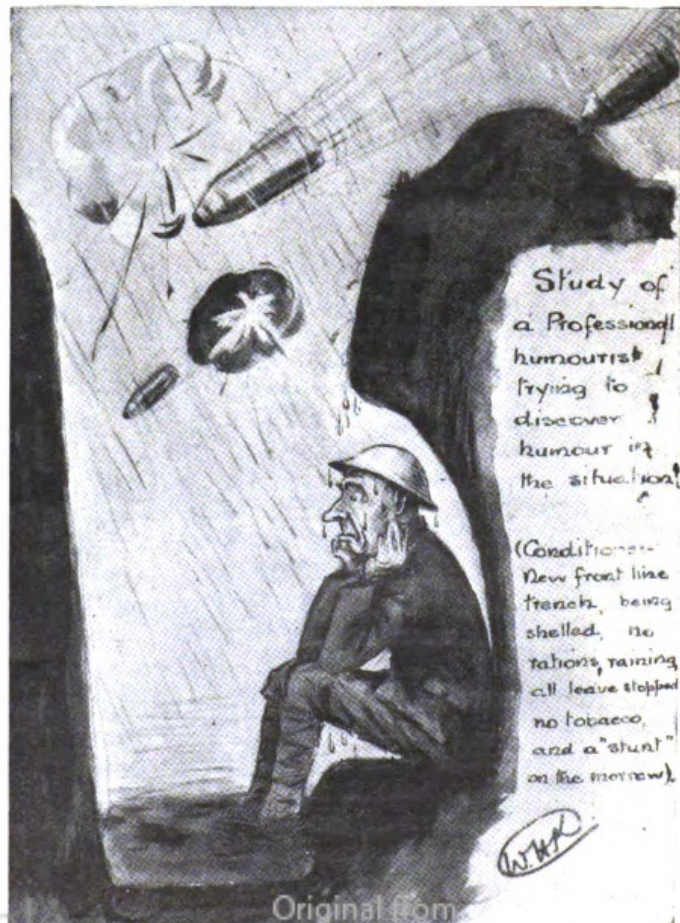 Study of
a Professional
humourist
trying to
discover
humour in
the situation
(Conditions-
New front line
trench, being
shelled, no
rations, raining,
all leave stopped
no tobacco,
and a "stunt"
on the morrow).
W.H.K
Original from